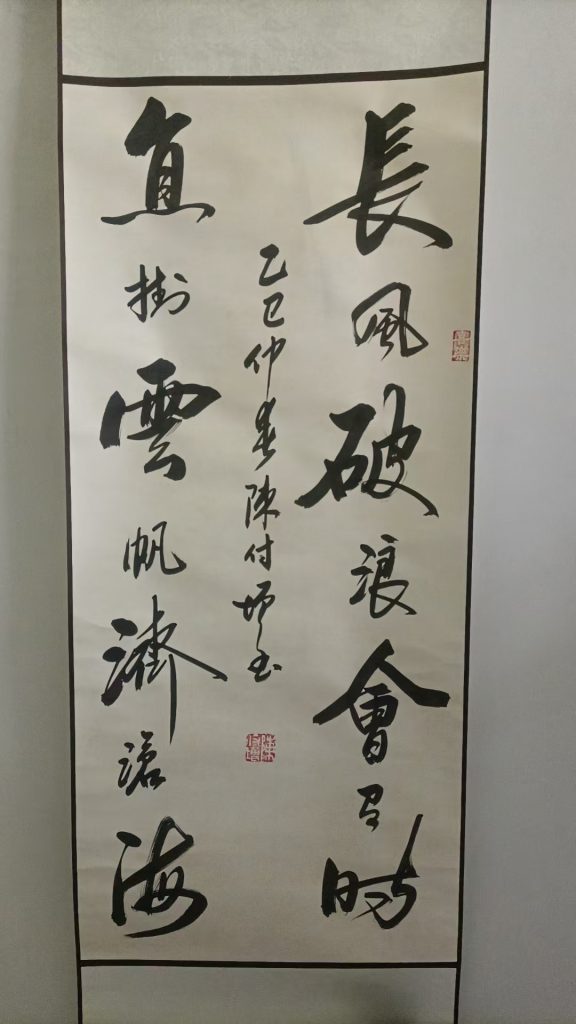 長風破浪會有時
直掛雲帆濟滄海
乙巳仲春陳付